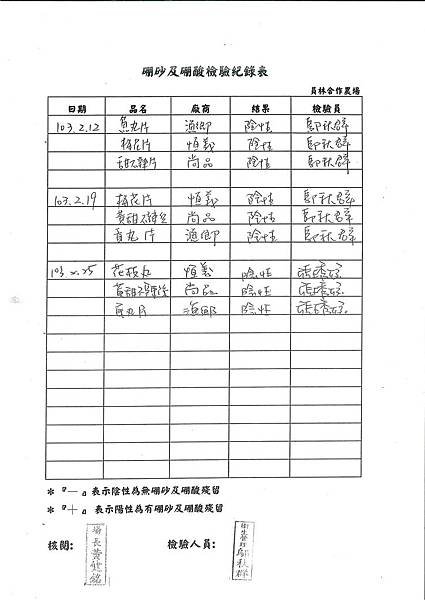 硼砂及硼酸檢驗紀錄表
員林合作農場
日期 品名 廠商 結果 檢驗員
103.2.12 魚丸片 漁鄉 陰性 鄔秋群
梅花片 恒義 陰性 鄔秋群
甜不辣片 尚品 陰性 鄔秋群
103.2.19 梅花片 恒義 陰性 鄔秋群
黃甜不辣 尚品 陰性 鄔秋群
魚丸片 漁鄉 陰性 鄔秋群
103.2.25 花枝丸 恒義 陰性
黃甜不辣 尚品 陰性
魚丸片 漁鄉 陰性
＊『－』表示陰性為無硼砂及硼酸殘留
＊『＋』表示陽性為有硼砂及硼酸殘留
核閱： 場長黃 檢驗人員： 衛生管理鄔秋群